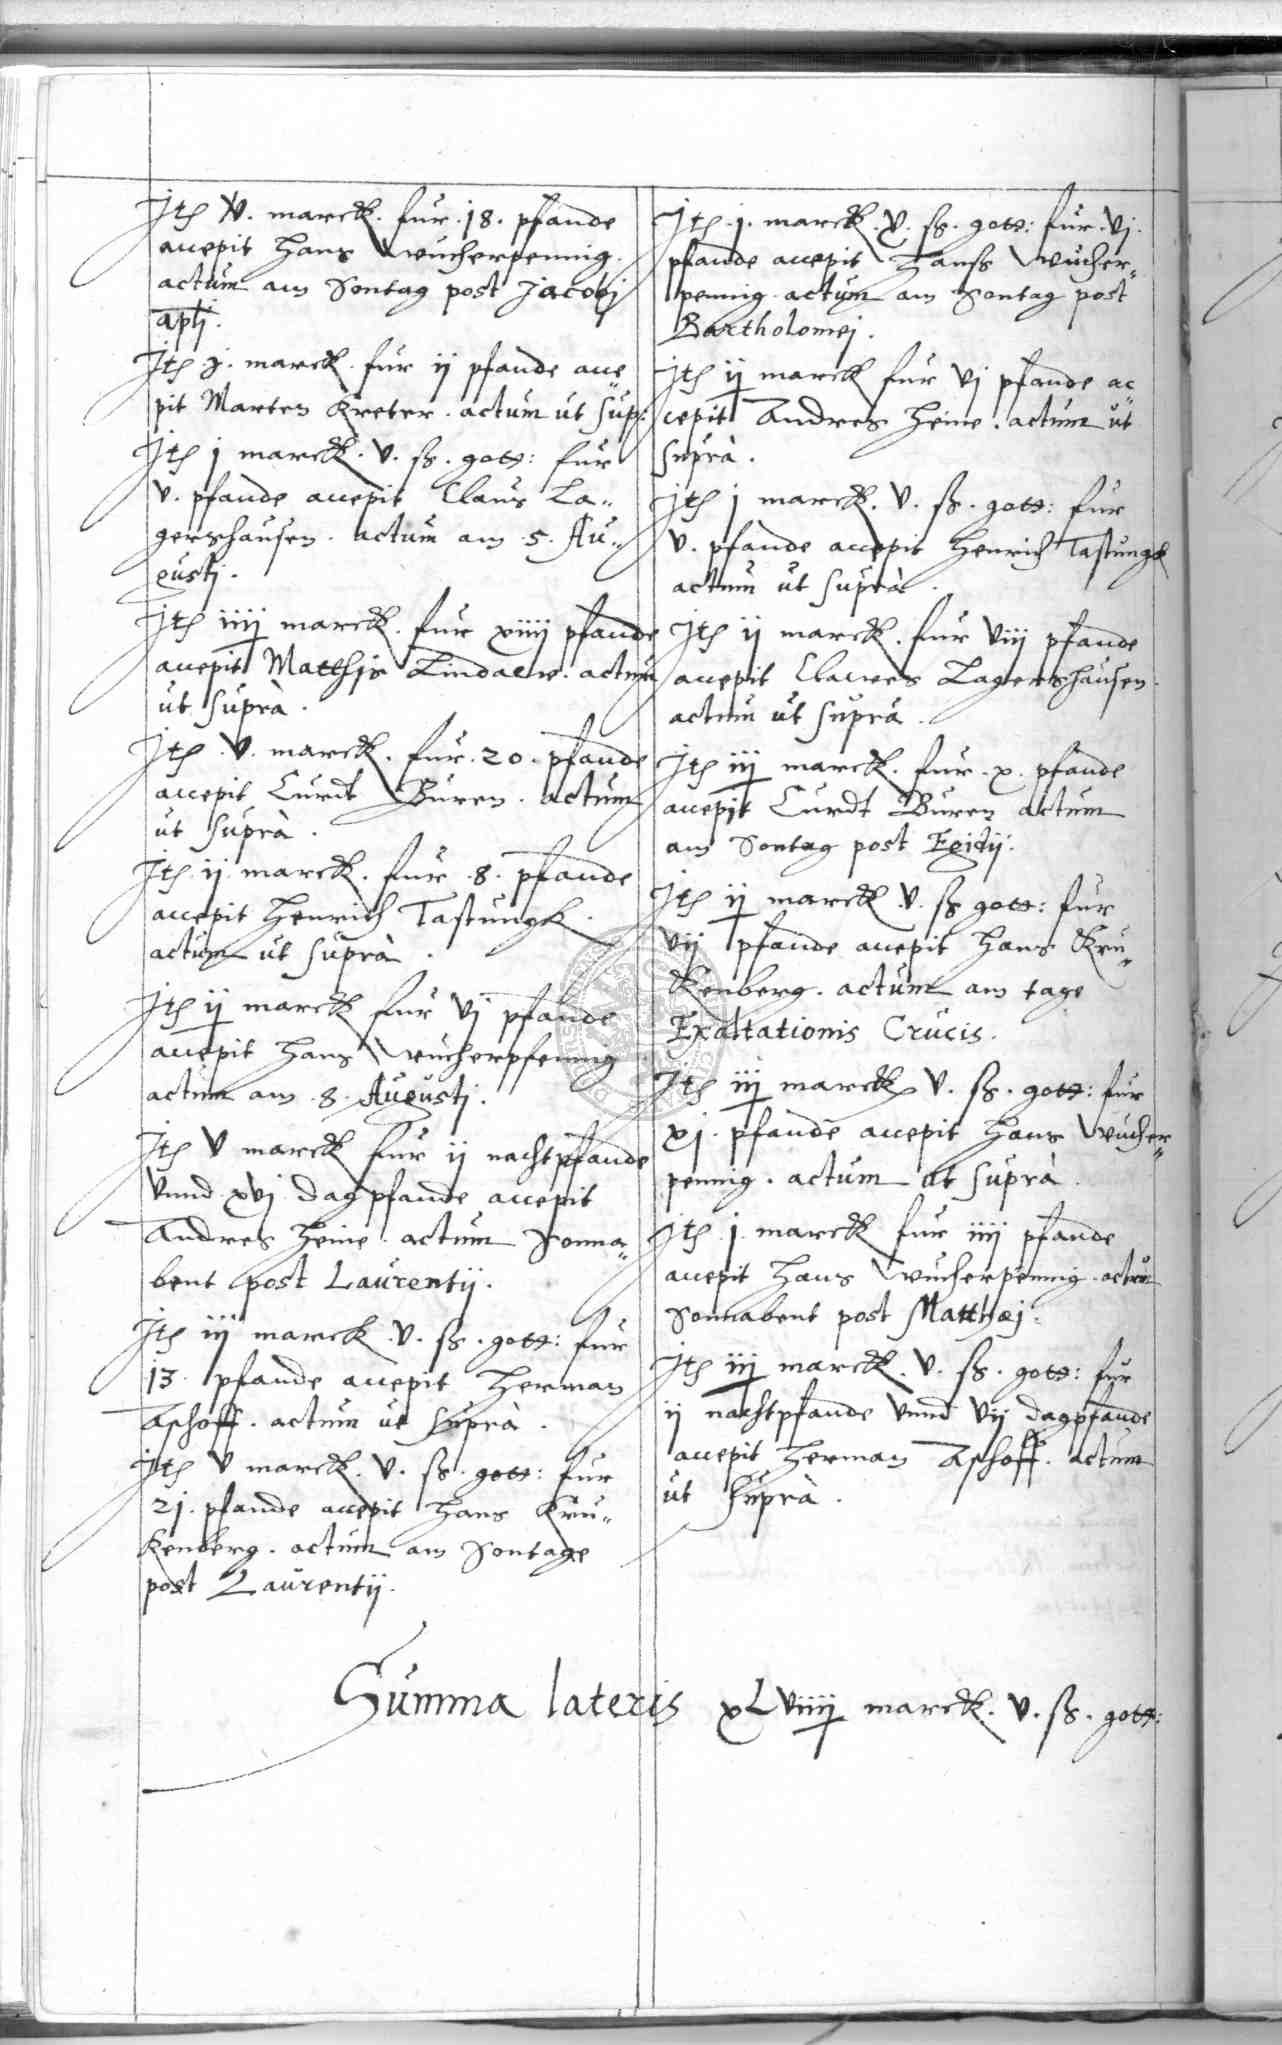 Jtꝫ V. marck. fur. 18. pfande
accepit Hans Wucherpennig.
actum am Sontag post Jacobj
aplj.
Jtꝫ j. marck. fur ij pfande acce
pit Marten Kreter. actum ut sup:
Jtꝫ j marck. v. ß. gott: fur
v. pfande accepit Claus La„
gershausen. actum am 5. Au„
gustj.
Jtꝫ iiij marck. fur xiiij pfande
accepit Matthis Lindaew. actum
ut suprà.
Jtꝫ. V. marck. fur. 20. pfande
accepit Curdt Buren. actum
ut suprà.
Jtꝫ ij marck. fur. 8. pfande
accepit Henrich Tastungk.
actum ut suprà.
Jtꝫ ij marck fur vj pfande
accepit Hans Wucherpfennig
actum am 8. Augustj.
Jtꝫ V marck fur ij nachtpfande
vnnd xvj dagpfande accepit
Andres Heine. actum Sonna„
bent post Laurentij.
Jtꝫ iij marck v. ß. gott: fur
13. pfande accepit Herman
Aschoff. actum ut suprà.
Jtꝫ V marck. v. ß. gott: fur
21. pfande accepit Hans Kru„
kenberg. actum am Sontage
post Laurentij.
Jtꝫ. j. marck. v. ß. gott: fur. vj.
pfande accepit Hanß Wucher„
pennig actum am Sontag post
Bartholomej.
Jtꝫ ij marck fur vj pfande ac„
cepit Andres Heine. actum ut
suprà.
Jtꝫ j marck. v. ß. gott: fur
v. pfande accepit Henrich Tastungk
actum ut suprà.
Jtꝫ ij marck. fur viij pfande
accepit Clawes Lagershausen.
actum ut suprà.
Jtꝫ iij marck. fur. x. pfande
accepit Curdt Buren actum
am Sontag post Egidij.
Jtꝫ ij marck v. ß gott: fur
vij pfande accepit Hans Kru„
kenberg. actum am tage
Exaltationis Crucis.
Jtꝫ iij marck v. ß. gott: fur
xj. pfande accepit Hans Wucher„
pennig. actum ut suprà.
Jtꝫ j. marck fur iiij pfande
accepit Hans Wucherpennig. actum
Sonnabent post Matthæj.
Jtꝫ iij marck. v. ß. gott: fur
ij nachtpfande vnnd vij dagpfande
accepit Herman Aschoff. actum
ut suprà.
Summa lateris xLviiij marck. v. ß. gott: